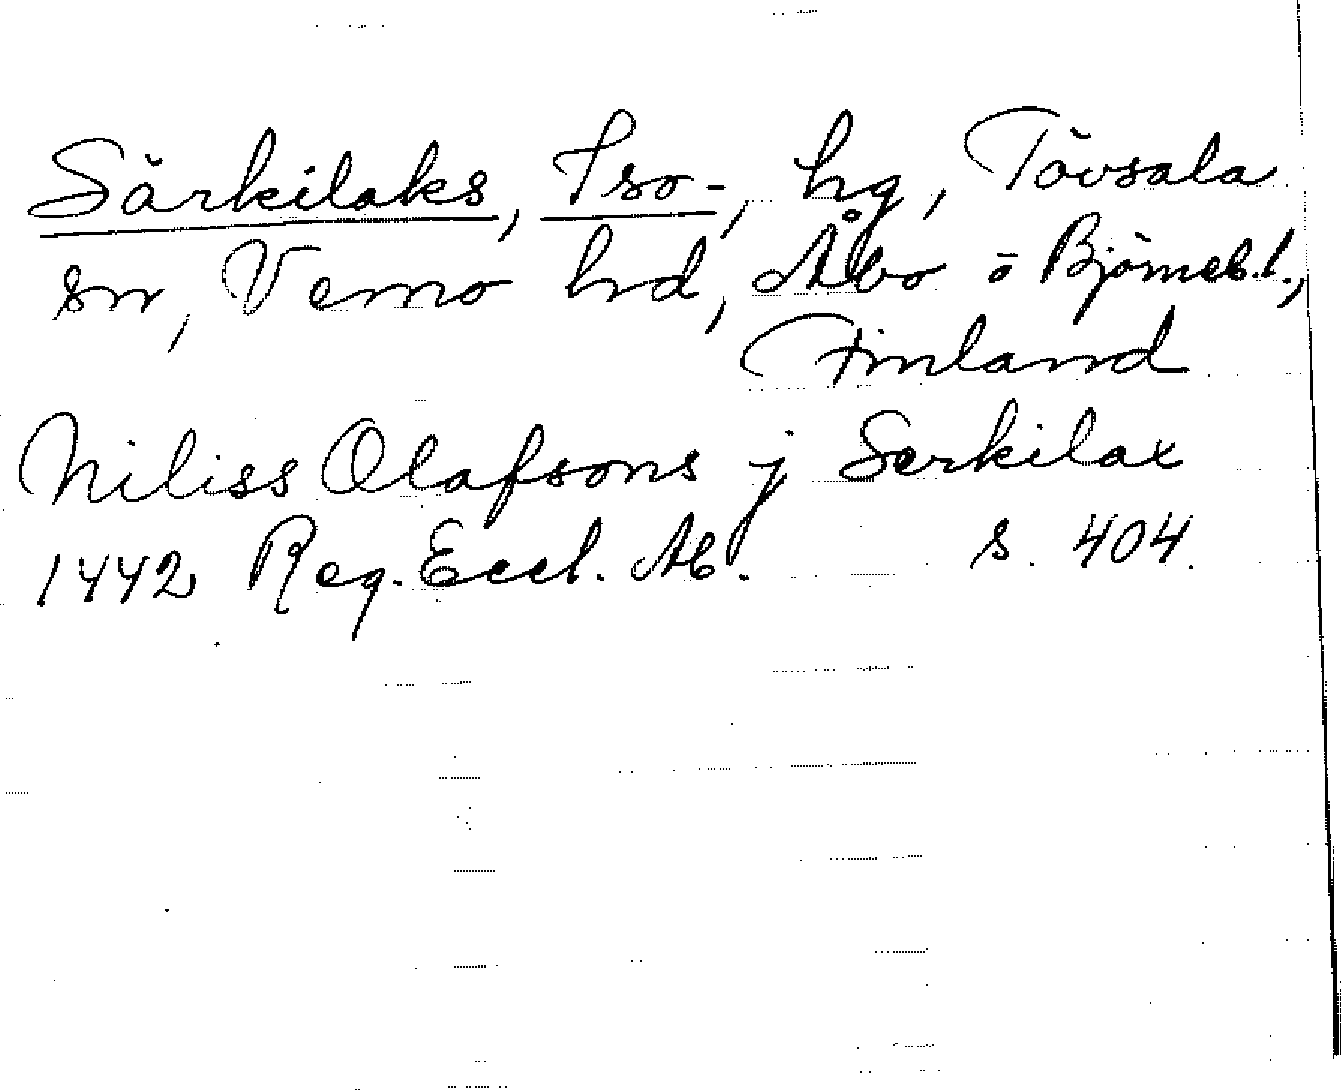 Särkilaks, Iso-, hg, Tövsala
sn, Vemo hd, Åbo o Björneb. l.,
Finland
Niliss Olafsons j Serkilax
1442 Reg. Eccl. Ab. s. 404.